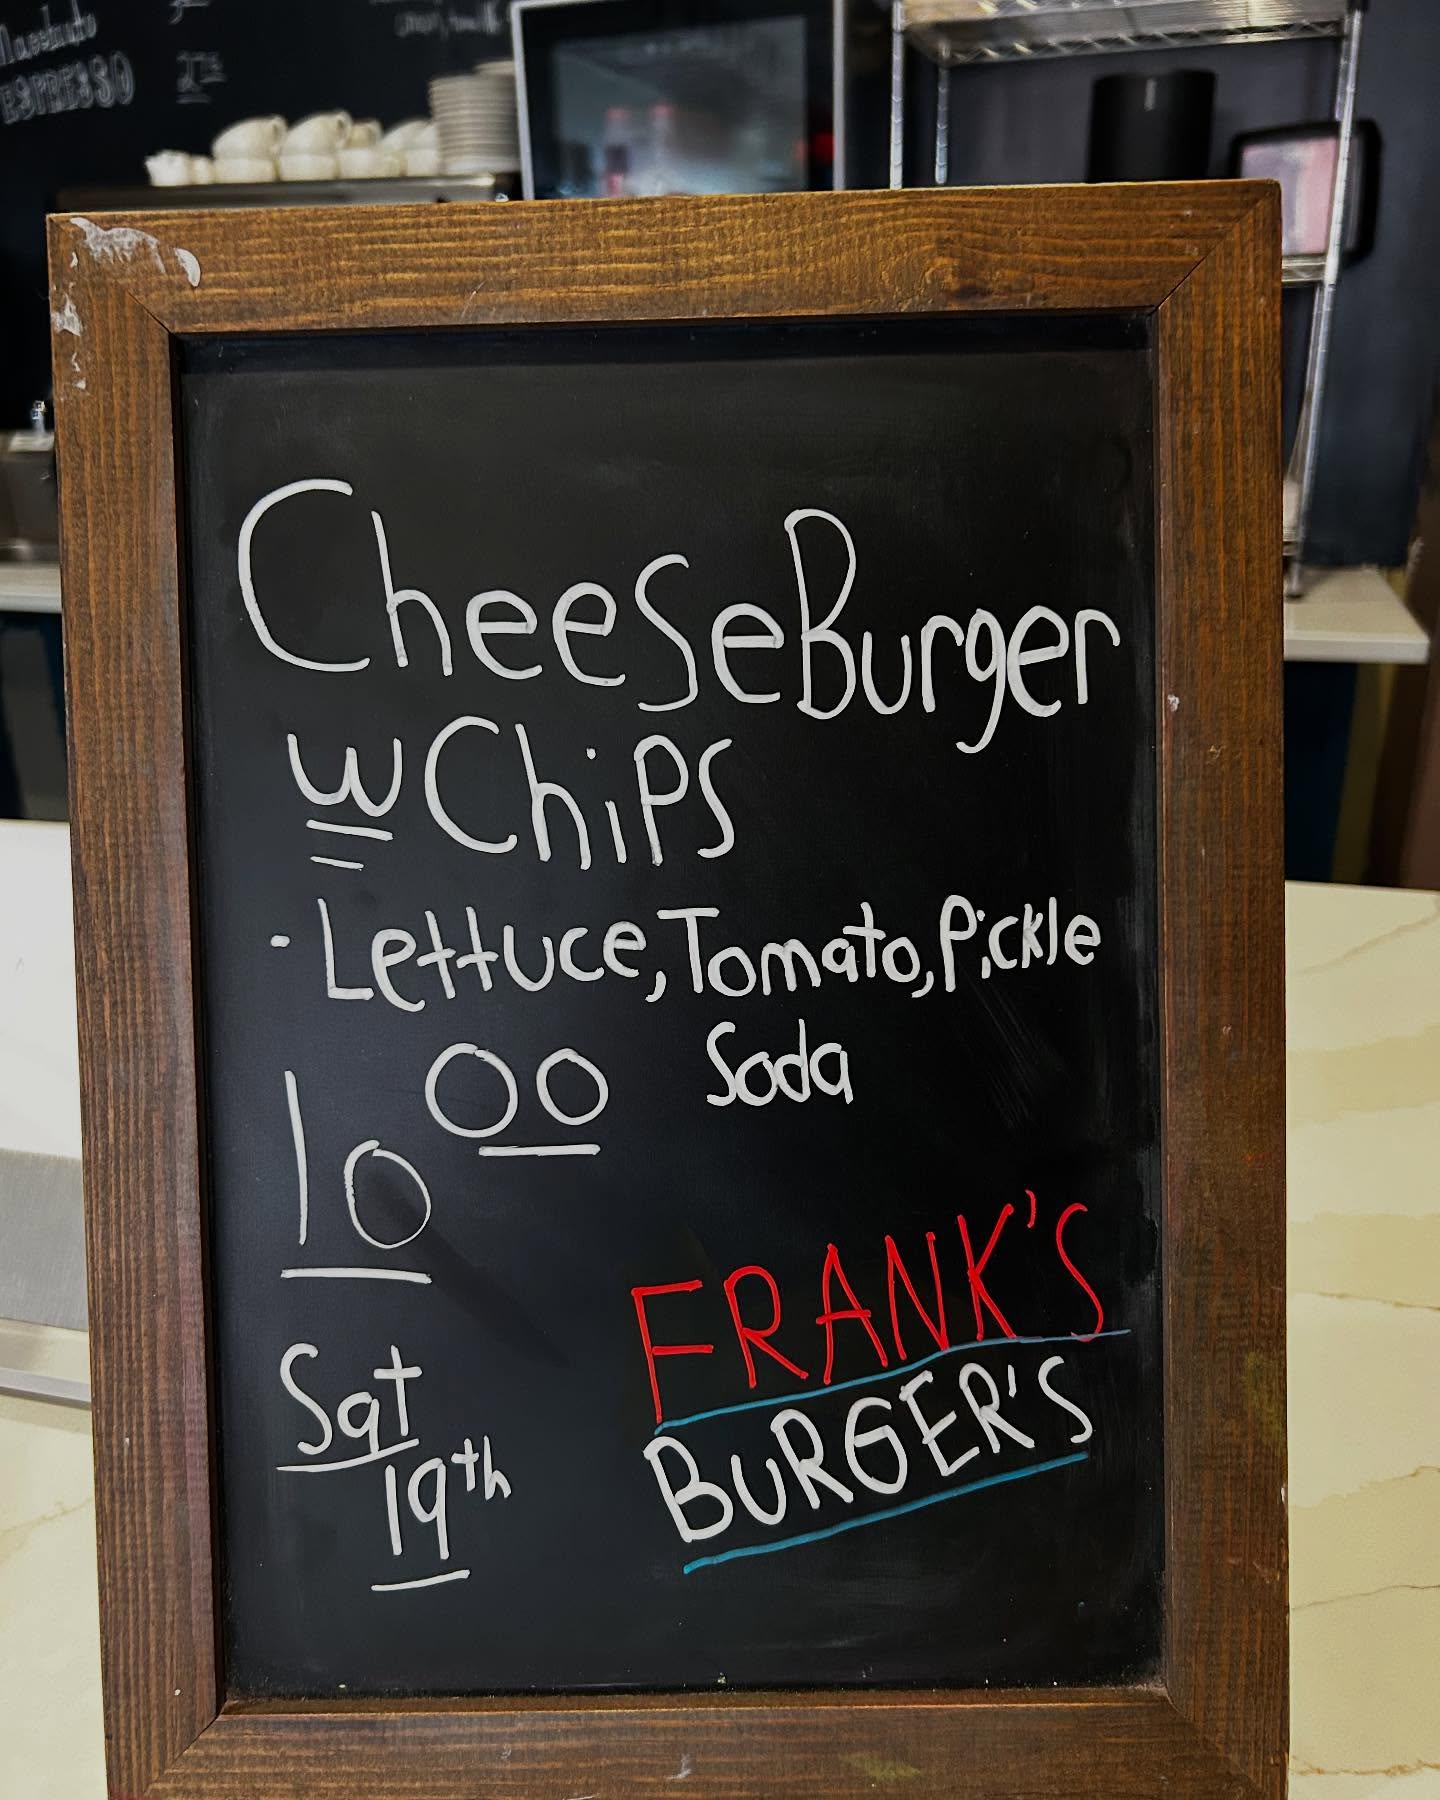 Macchiato
ESPRESSO
CheeseBurger
w Chips
· Lettuce, Tomato, Pickle
Soda
10 00
Sat
19th
FRANK'S
BURGER'S